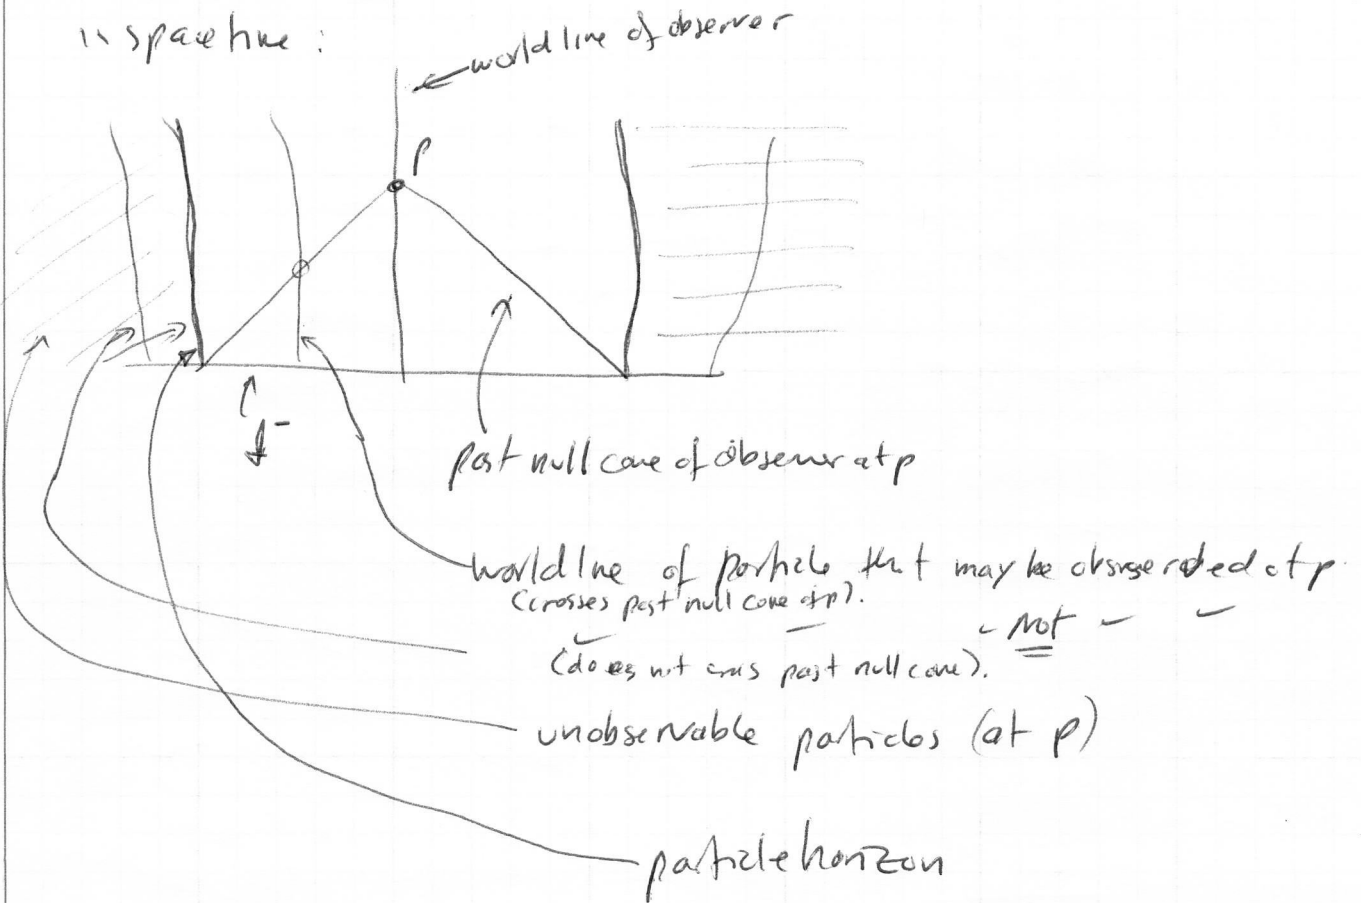 in spacetime :
world line of observer
p
𝓘⁻
past null cone of observer at p
world line of particle that may be observed at p.
(crosses past null cone of p).
Not
(does not cross past null cone).
unobservable particles (at p)
particle horizon